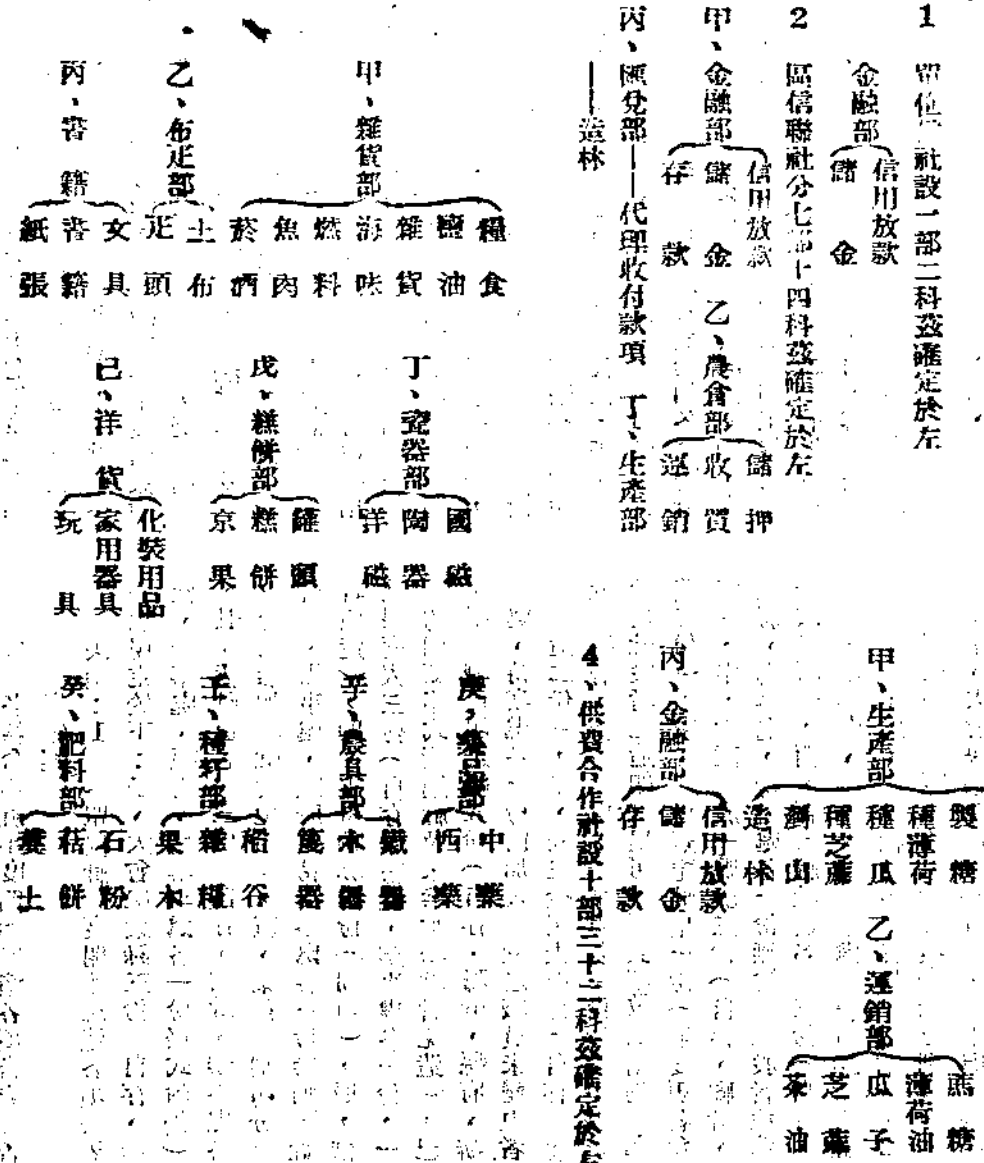 1 單位社設一部二科茲確定於左
金融部
信用放款
儲金
2 區信聯社分七部十四科茲確定於左
甲、金融部
信用放款
儲金
存款
乙、農倉部
儲押
收買
運銷
丙、匯兌部——代理收付款項
丁、生產部
——造林
甲、生產部
製糖
種薄荷
種瓜
種芝蔴
造林
乙、運銷部
蔗糖
薄荷油
瓜子
芝蔴
茶油
丙、金融部
信用放款
儲金
存款
4、供資合作社設十部三十二科茲確定於左
甲、雜貨部
糧食
鹽油
雜貨
海味
燃料
魚肉
菸酒
乙、布疋部
土布
疋頭
丙、書籍
女具
書籍
紙張
丁、瓷器部
國磁
陶器
洋磁
戊、糕餅部
罐頭
糕餅
京果
己、洋貨
化裝用品
家用器具
玩具
庚、藥品部
中藥
西藥
辛、農具部
鐵器
木器
篾器
壬、種籽部
稻谷
雜糧
果木
癸、肥料部
石粉
菇餅
糞土